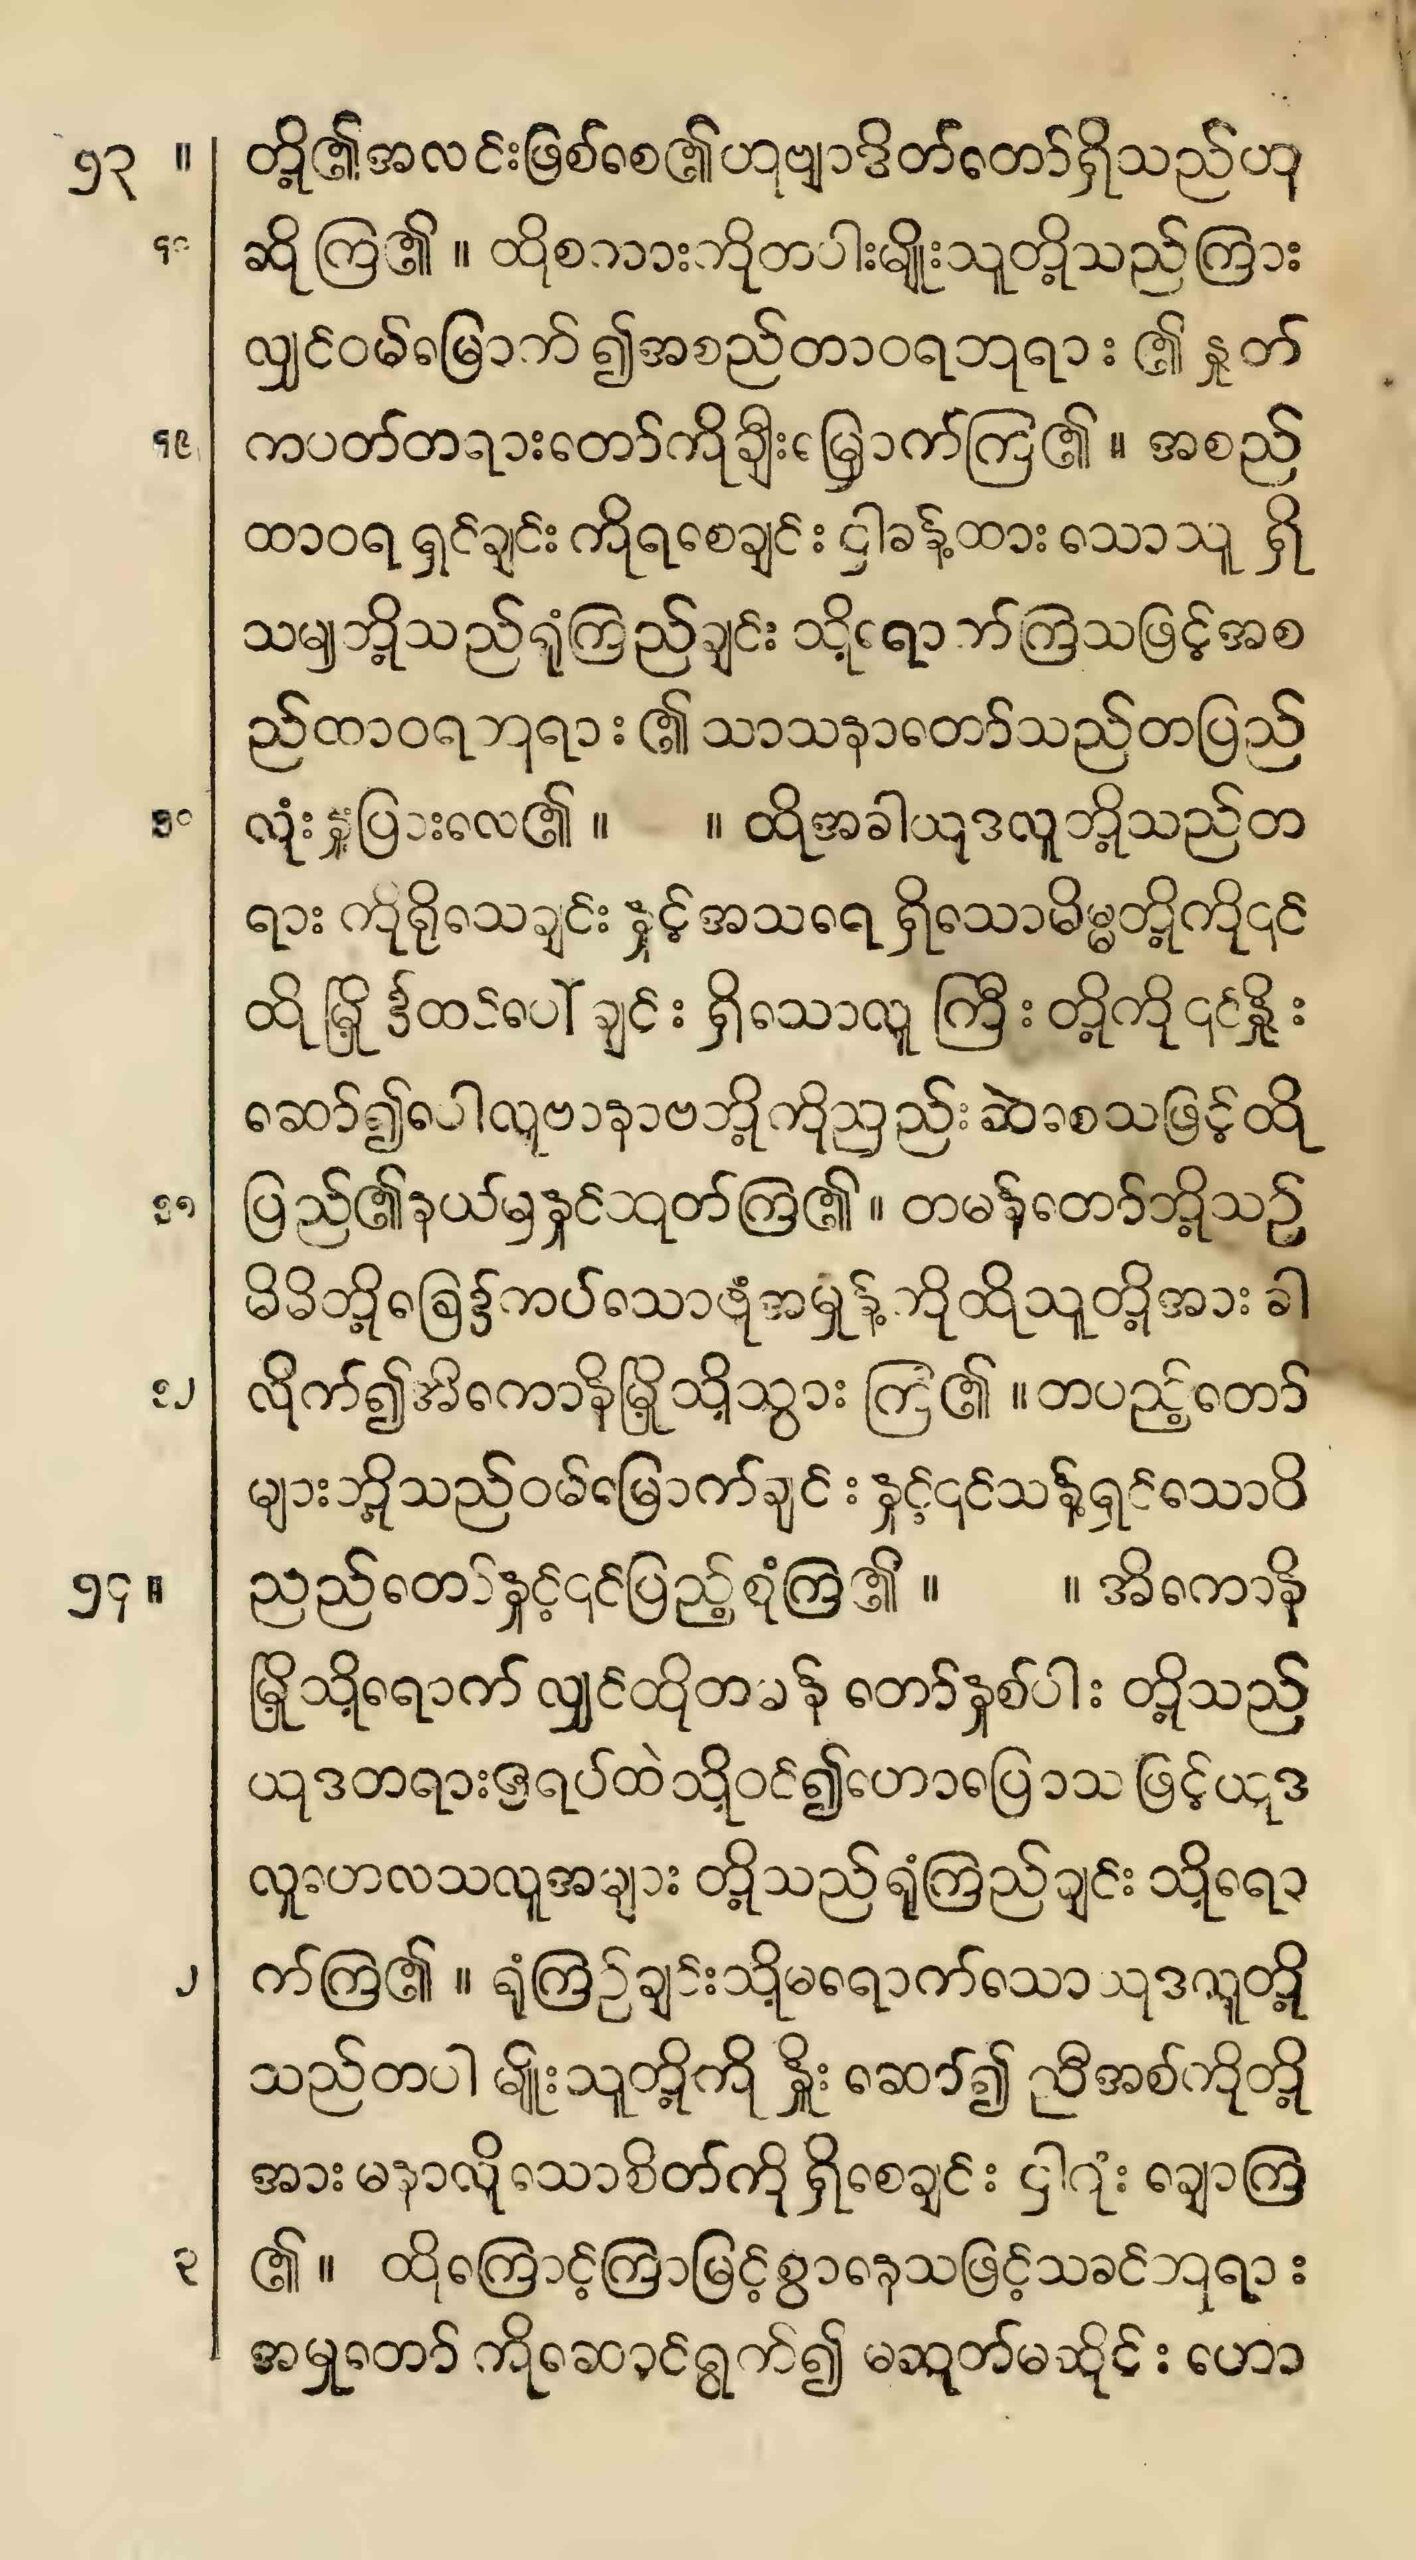 ၅၃ ။ တို့၏အလင်းဖြစ်စေ၏ဟုဗျာဒိတ်တော်ရှိသည်ဟု
ဆိုကြ၏ ။ ထိုစကားကိုတပါးမျိုးသူတို့သည်ကြား
လျှင်ဝမ်မြောက်၍အစည်တာဝရဘုရား၏နှုတ်
ကပတ်တရားတော်ကိုချီးမြှောက်ကြ၏ ။ အစည်
ထာဝရရှင်ချင်းကိုရစေချင်းဌါခန့်ထားသောသူရှိ
သမျှတို့သည်ရုံကြည်ချင်းသို့ရောက်ကြသဖြင့်အစ
ည်ထာဝရဘုရား၏သာသနာတော်သည်တပြည်
၅၀ လုံးနှံ့ပြားလေ၏ ။ ။ ထိုအခါယုဒလူတို့သည်တ
ရားကိုရိုသေချင်းနှင့်အသရေရှိသောမိမ္မတို့ကို၎င်
ထိုမြို့၌ထင်ပေါ်ချင်းရှိသောလူကြီးတို့ကို၎င်နှိုး
ဆော်၍ပေါလုဗာနာဗတို့ကိုညှည်းဆဲစေသဖြင့်ထို
၅၁ ပြည်၏နယ်မှနှင်ထုတ်ကြ၏ ။ တမန်တော်တို့သည်
မိမိတို့ခြေ၌ကပ်သောဖုံအမှုန့်ကိုထိုသူတို့အားခါ
၅၂ လိုက်၍အိကောနိမြို့သို့သွားကြ၏ ။ တပည့်တော်
များတို့သည်ဝမ်မြောက်ချင်းနှင့်၎င်သန့်ရှင်သောဝိ
၅၄ ။ ညည်တော်နှင့်၎င်ပြည့်စုံကြ၏ ။ ။ အိကောနိ
မြို့သို့ရောက်လျှင်ထိုတမန်တော်နှစ်ပါးတို့သည်
ယုဒတရားဇရပ်ထဲသို့ဝင်၍ဟောပြောသဖြင့်ယုဒ
လူဟေလသလူအများတို့သည်ရုံကြည်ချင်းသို့ရော
၂ က်ကြ၏ ။ ရုံကြည်ချင်းသို့မရောက်သောယုဒလူတို့
သည်တပါမျိုးသူတို့ကိုနှိုးဆော်၍ညီအစ်ကိုတို့
အားမနာလိုသောစိတ်ကိုရှိစေချင်းဌါဂုံးချောကြ
၃ ၏ ။ ထိုကြောင့်ကြာမြင့်စွာနေသဖြင့်သခင်ဘုရား
အမှုတော်ကိုဆောင်ရွက်၍မဆုတ်မဆိုင်းဟော